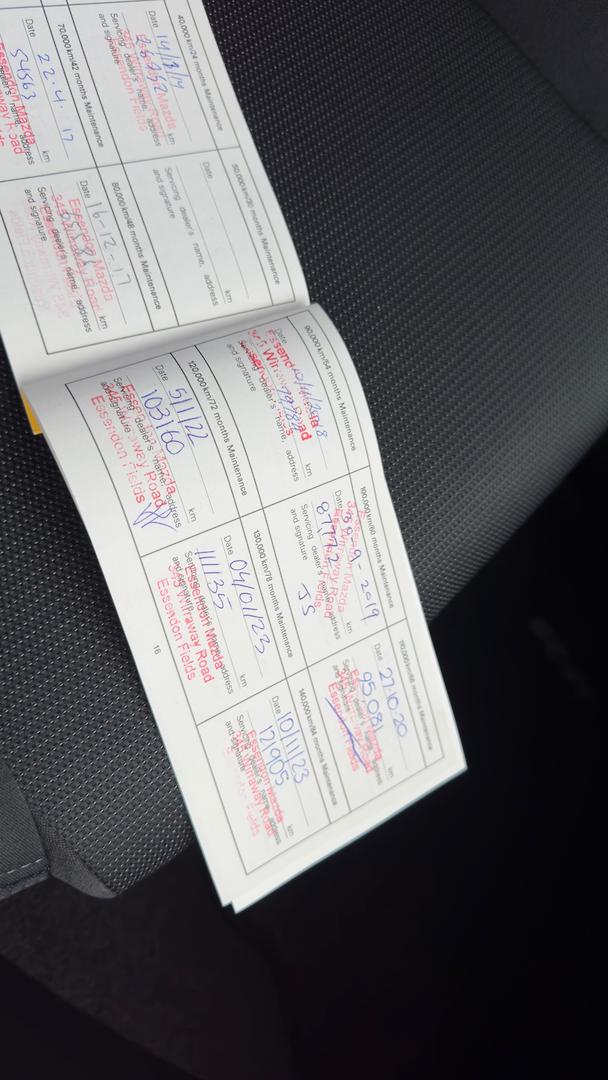 40,000 km/24 months Maintenance
Date 14/3/14
km
Servicing dealer's name, address
and signature
Essendon Mazda
345 Wirraway Road
Essendon Fields
50,000 km/30 months Maintenance
Date
km
Servicing dealer's name, address
and signature
70,000 km/42 months Maintenance
Date 22.4.17
54563 km
dealer's name, address
Essendon Mazda
Wirraway Road
80,000 km/48 months Maintenance
Date 16-12-17
km
Servicing dealer's name, address
and signature
Essendon Mazda
345 Wirraway Road
90,000 km/54 months Maintenance
Date
km
Servicing dealer's name, address
and signature
100,000 km/60 months Maintenance
Date 9-2019
87772 km
Servicing dealer's name, address
and signature
JS
110,000 km/66 months Maintenance
Date 27.10.20
95081 km
Servicing dealer's name, address
and signature
Essendon Fields
120,000 km/72 months Maintenance
Date 5/1/22
103160 km
Servicing dealer's name, address
and signature
Essendon Mazda
345 Wirraway Road
Essendon Fields
130,000 km/78 months Maintenance
Date 04/01/23
111135 km
Servicing dealer's name, address
and signature
Essendon Mazda
345 Wirraway Road
Essendon Fields
140,000 km/84 months Maintenance
Date 10/11/23
12905 km
Servicing dealer's name, address
and signature
Essendon Mazda
345 Wirraway Road
Essendon Fields
16